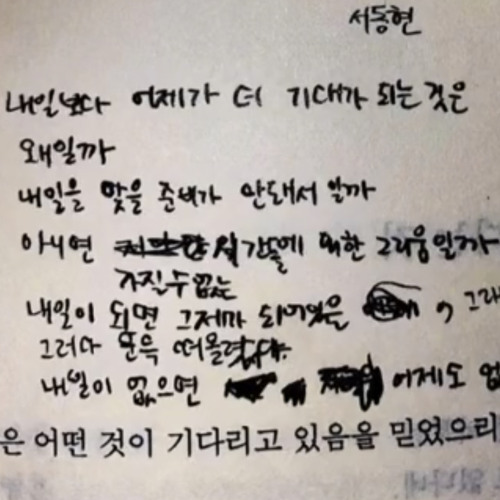 서동현
내일보다 어제가 더 기대가 되는 것은
왜일까
내일을 맞을 준비가 안돼서 일까
아니면 시간들에 의한 그리움일까
가질 수 없는
내일이 되면 그제가 되어있을 , 그래
그러다 문득 떠올랐다.
내일이 없으면 어제도 없
은 어떤 것이 기다리고 있음을 믿었으리